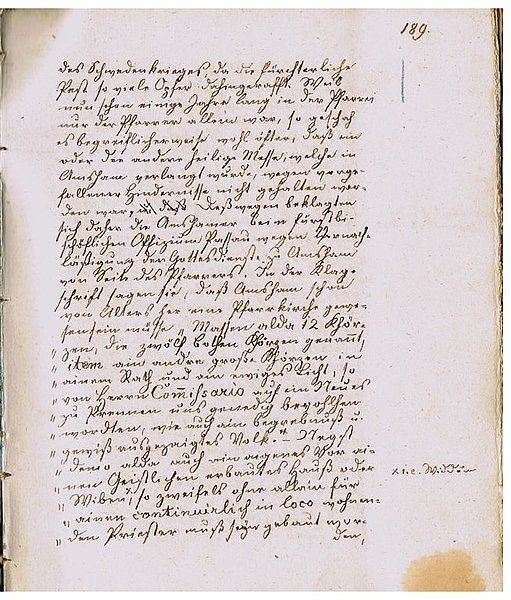 189.
des Schwedenkrieges, da die fürchterliche
Pest so viele Opfer dahingerafft. Weil
nun schon einige Jahre lang in der Pfarrei
nur der Pfarrer allein war, so geschah
es begreiflicherweise wohl öfter, daß ein
oder die andere heilige Messe, welche in
Amsham verlangt wurde, wegen vorge-
fallener Hindernisse nicht gehalten wor-
den war, Deßwegen beklagten
sich daher die Amshamer beim fürstbi-
schöflichen Offizium Passau wegen Vernach-
läßigung der Gottesdienste zu Amsham
von Seite des Pfarrers. In der Klag-
schrift sagen sie, daß Amsham schon
von Alters her eine Pfarrkirche gewe-
sen sein müsse „Massen alda 12 Khör-
„ zen, die zwölf bothen Khörzen genant,
„ item ain andre große Khörzen, in
„ ainem Rath und ain ewiges Licht, so
„ von Herrn Commissario auch ein Neues
„ zu Prennen uns genedig bevolhen
„ wordten, wie auch ain begrebnuß u.
„ gewiß ausgezaigtes Volk. – Negst
„ deme alda auch ain aigenes Vor ai-
„ nen Geistlichen erbautes Hauß oder
„ Wiben x so zweifels ohne allain für
„ ainen continuirlich in loco wohnen-
„ den Priester muß sein gebaut wor-
den,
x i. e. Widdim